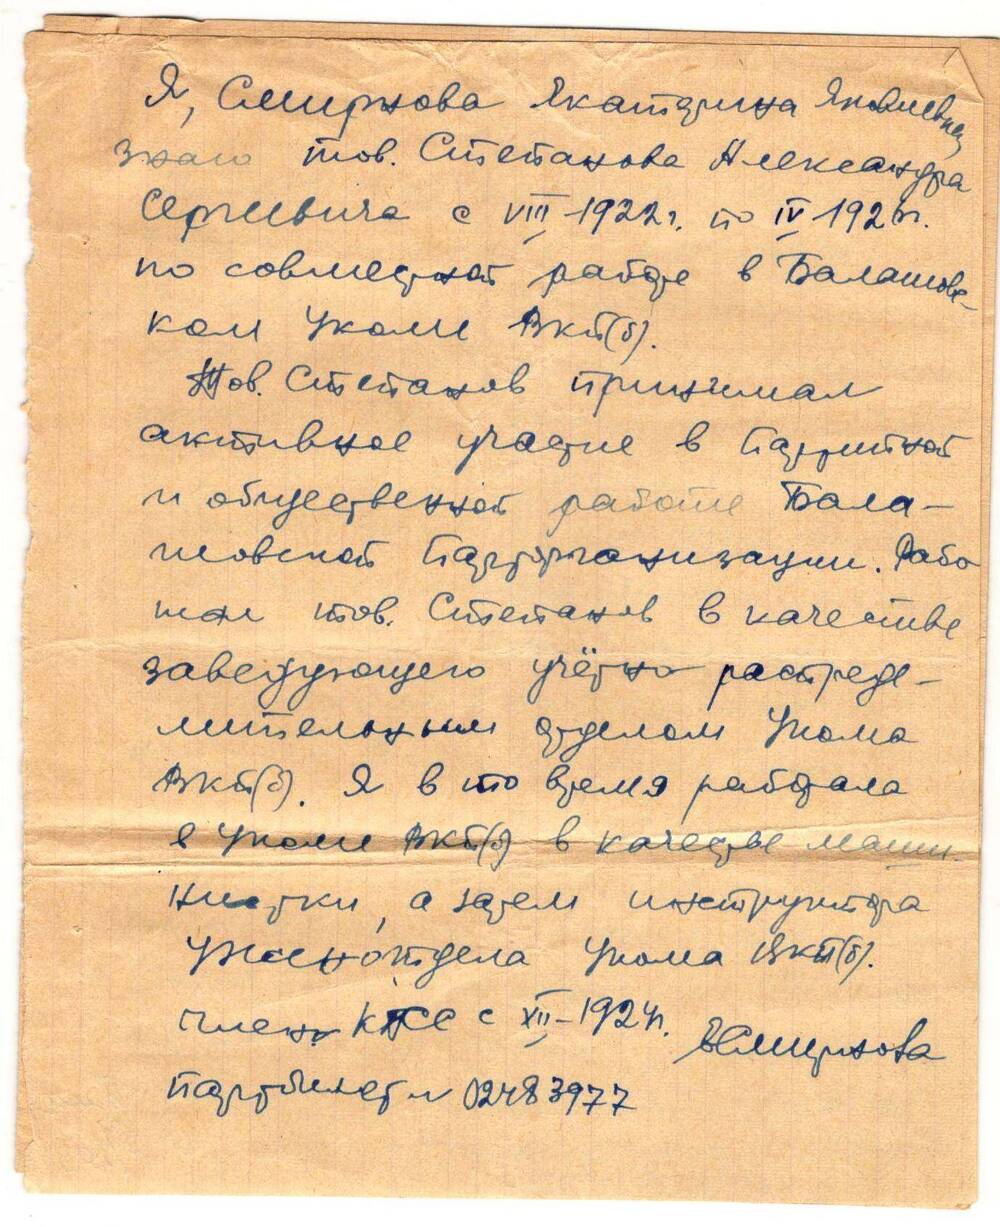 Я, Смирнова Екатерина Яковлевна,
знаю тов. Степанова Александра
Сергеевича с VIII-1922г. по IV 192 г.
по совместной работе в Балашовс-
ком Укоме ВКП(б).
Тов. Степанов принимал
активное участие в партийной
и общественной работе Бала-
шовской парторганизации. Рабо
тал тов. Степанов в качестве
заведующего учётно распреде-
лительным отделом Укома
ВКП(б). Я в то время работала
в Укоме ВКП(б) в качестве маши-
нистки, а затем инструктора
Уженотдела Укома ВКП(б).
член КПСС с XII-1924г.
ЕСмирнова
партбилет № 02483977